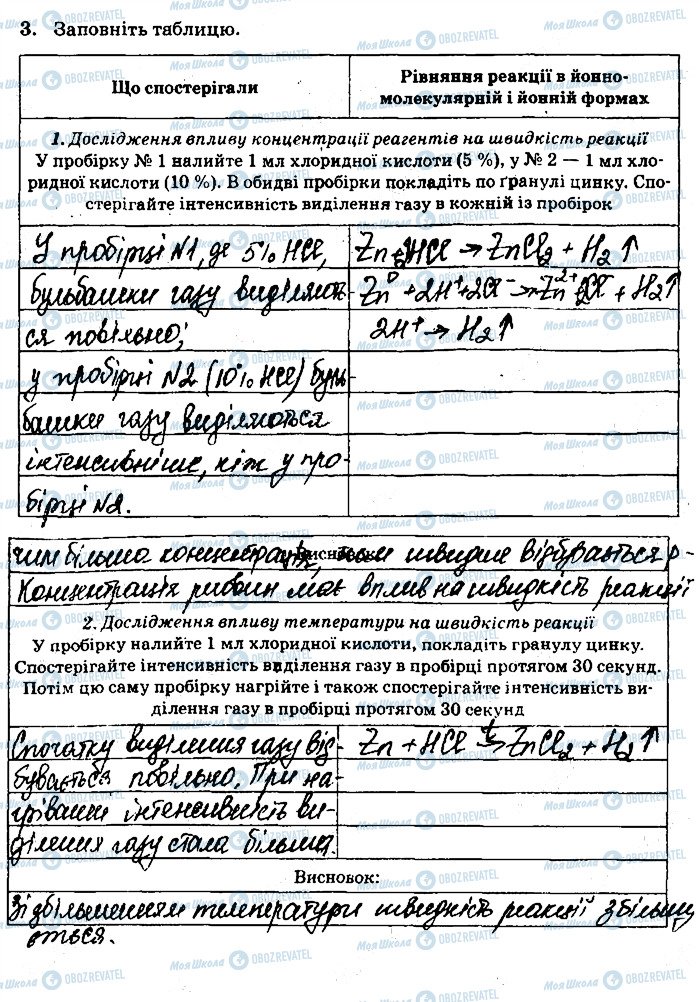 3. Заповніть таблицю.
Що спостерігали
Рівняння реакції в йонно-
молекулярній і йонній формах
1. Дослідження впливу концентрації реагентів на швидкість реакції
У пробірку № 1 налийте 1 мл хлоридної кислоти (5 %), у № 2 — 1 мл хло-
ридної кислоти (10 %). В обидві пробірки покладіть по ґранулі цинку. Спо-
стерігайте інтенсивність виділення газу в кожній із пробірок
У пробірці №1, де 5% HCl,
бульбашки газу виділяють-
ся повільно;
у пробірці №2 (10% HCl) буль-
башки газу виділяються
інтенсивніше, ніж у про-
бірці №2.
Zn + 2HCl → ZnCl2 + H2↑
Zn⁰ + 2H⁺ + 2Cl⁻ → Zn²⁺ + 2Cl⁻ + H2↑
2H⁺ → H2↑
Висновок:
чим більша концентрація, тим швидше відбувається р-
Концентрація речовин має вплив на швидкість реакції
2. Дослідження впливу температури на швидкість реакції
У пробірку налийте 1 мл хлоридної кислоти, покладіть гранулу цинку.
Спостерігайте інтенсивність виділення газу в пробірці протягом 30 секунд.
Потім цю саму пробірку нагрійте і також спостерігайте інтенсивність ви-
ділення газу в пробірці протягом 30 секунд
Спочатку виділення газу від-
бувається повільно. При на-
гріванні інтенсивність ви-
ділення газу стала більша.
Zn + HCl →t ZnCl2 + H2↑
Висновок:
Зі збільшенням температури швидкість реакції збільшу
ється.